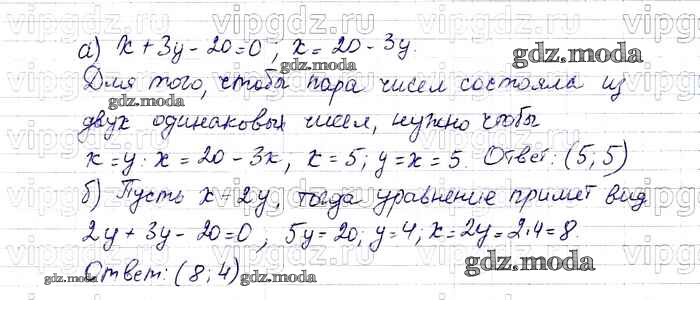 а) x + 3y - 20 = 0 ; x = 20 - 3y.
Для того, чтобы пара чисел состояла из
двух одинаковых чисел, нужно чтобы
x = y : x = 20 - 3x, x = 5; y = x = 5. Ответ: (5; 5)
б) Пусть x = 2y, тогда уравнение примет вид
2y + 3y - 20 = 0 ; 5y = 20, y = 4, x = 2y = 2·4 = 8.
Ответ: (8; 4)
gdz.moda
gdz.moda
gdz.moda
gdz.moda
gdz.moda
gdz.moda
vipgdz.ru